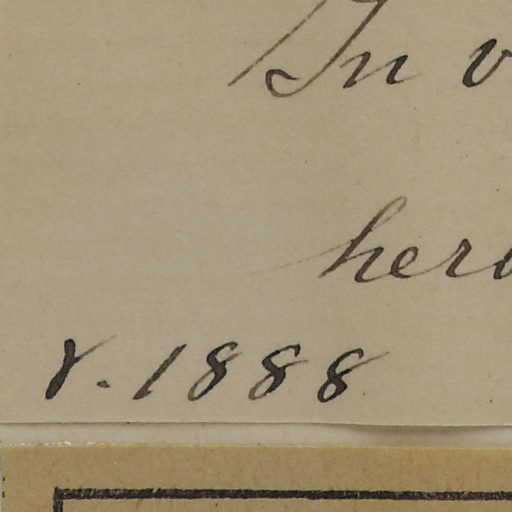 In v
hero
8. 1888